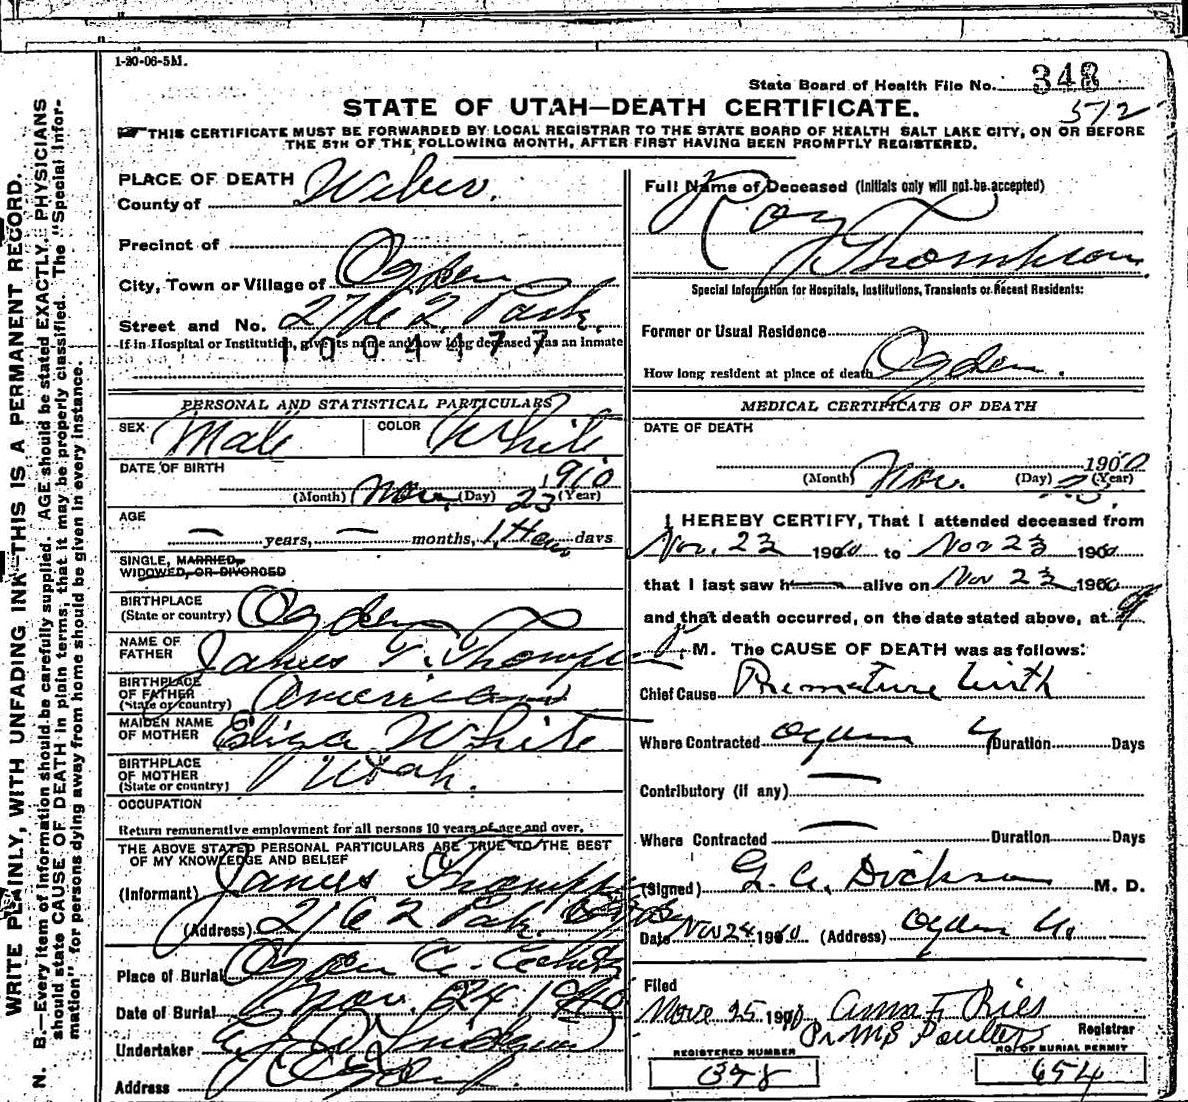 1-20-06-5M.
State Board of Health File No. 348
572
STATE OF UTAH—DEATH CERTIFICATE.
THIS CERTIFICATE MUST BE FORWARDED BY LOCAL REGISTRAR TO THE STATE BOARD OF HEALTH SALT LAKE CITY, ON OR BEFORE
THE 5TH OF THE FOLLOWING MONTH, AFTER FIRST HAVING BEEN PROMPTLY REGISTERED.
WRITE PLAINLY, WITH UNFADING INK—THIS IS A PERMANENT RECORD.
N. B.—Every item of information should be carefully supplied. AGE should be stated EXACTLY. PHYSICIANS
should state CAUSE OF DEATH in plain terms, that it may be properly classified. The "Special Infor-
mation" for persons dying away from home should be given in every instance.
PLACE OF DEATH
County of Weber.
Precinct of
City, Town or Village of Ogden
Street and No.
If in Hospital or Institution, give its name and how long deceased was an Inmate
1004177
PERSONAL AND STATISTICAL PARTICULARS
SEX Male COLOR White
DATE OF BIRTH
(Month) Nov. (Day) 23 (Year) 1910
AGE
— years, — months, 1 Hour days
SINGLE, MARRIED,
WIDOWED, OR DIVORCED
BIRTHPLACE
(State or country) Ogden
NAME OF
FATHER James T. Thompson
BIRTHPLACE
OF FATHER
(State or country) American
MAIDEN NAME
OF MOTHER Eliza White
BIRTHPLACE
OF MOTHER
(State or country) Utah.
OCCUPATION
Return remunerative employment for all persons 10 years of age and over.
THE ABOVE STATED PERSONAL PARTICULARS ARE TRUE TO THE BEST
OF MY KNOWLEDGE AND BELIEF
(Informant) James Thompson
(Address)
Place of Burial Ogden
Date of Burial Nov. 24 1910
Undertaker
Address Ogden.
Full Name of Deceased (Initials only will not be accepted)
Roy
Thompson
Special Information for Hospitals, Institutions, Transients or Recent Residents:
Former or Usual Residence
How long resident at place of death Ogden.
MEDICAL CERTIFICATE OF DEATH
DATE OF DEATH
(Month) Nov. (Day) 23 (Year) 1910
I HEREBY CERTIFY, That I attended deceased from
Nov. 23 1910 to Nov 23 1910
that I last saw h alive on Nov 23 1910
and that death occurred, on the date stated above, at 9
P. M. The CAUSE OF DEATH was as follows:
Chief Cause Premature birth
Where Contracted Ogden U Duration Days
Contributory (if any) —
Where Contracted — Duration Days
(Signed) Dickson M. D.
Date Nov 24 1910 (Address) Ogden U.
Filed
Nov 25 1910 Anna F. Ries
Pr. MS Poulter Registrar
REGISTERED NUMBER
398
NO. OF BURIAL PERMIT
654